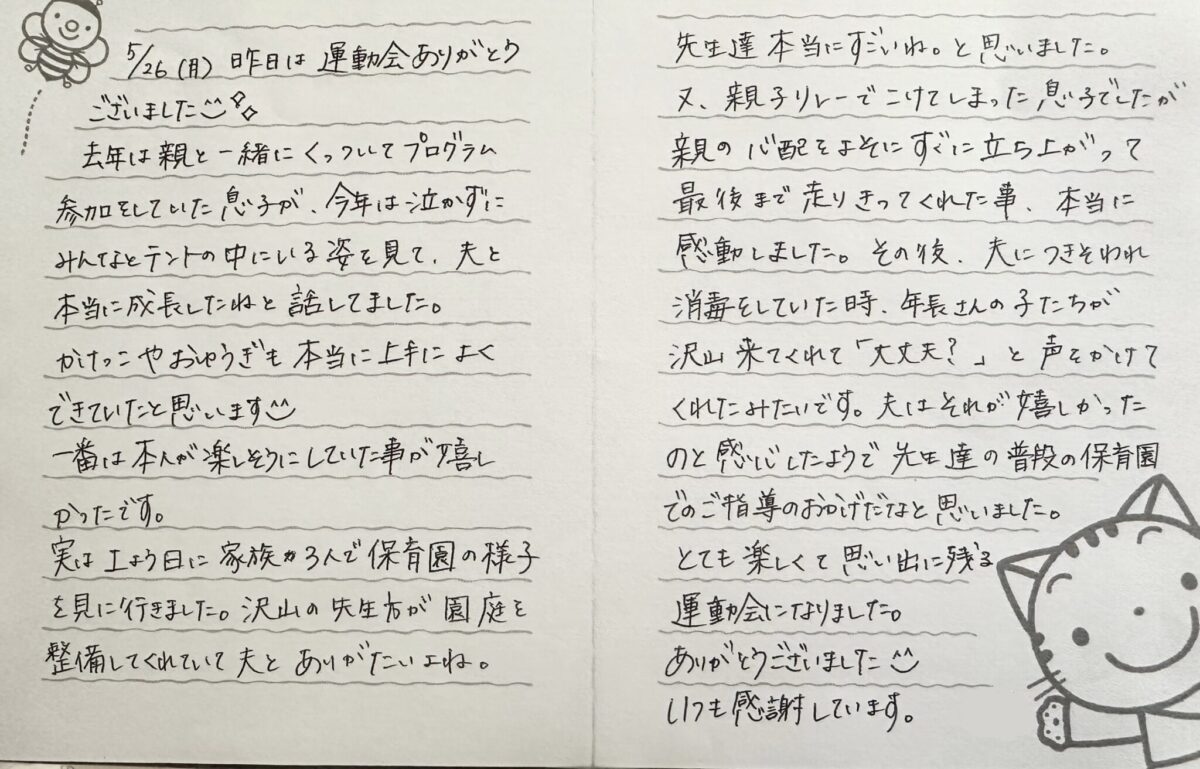 5/26(月) 昨日は 運動会ありがとう
ございました^^
去年は親と一緒にくっついてプログラム
参加をしていた息子が、今年は泣かずに
みんなとテントの中にいる姿を見て、夫と
本当に成長したねと話してました。
かけっこやおゆうぎも本当に上手によく
できていたと思います^^
一番は本人が楽しそうにしていた事が嬉し
かったです。
実は土よう日に家族が3人で保育園の様子
を見に行きました。沢山の先生方が園庭を
整備してくれていて夫とありがたいよね。
先生達本当にすごいね。と思いました。
又、親子リレーでこけてしまった息子でしたが
親の心配をよそにすぐに立ち上がって
最後まで走りきってくれた事、本当に
感動しました。その後、夫につきそわれ
消毒をしていた時、年長さんの子たちが
沢山来てくれて「大丈夫?」と声をかけて
くれたみたいです。夫はそれが嬉しかった
のと感心したようで先生達の普段の保育園
でのご指導のおかげだなと思いました。
とても楽しくて思い出に残る
運動会になりました。
ありがとうございました^^
いつも感謝しています。